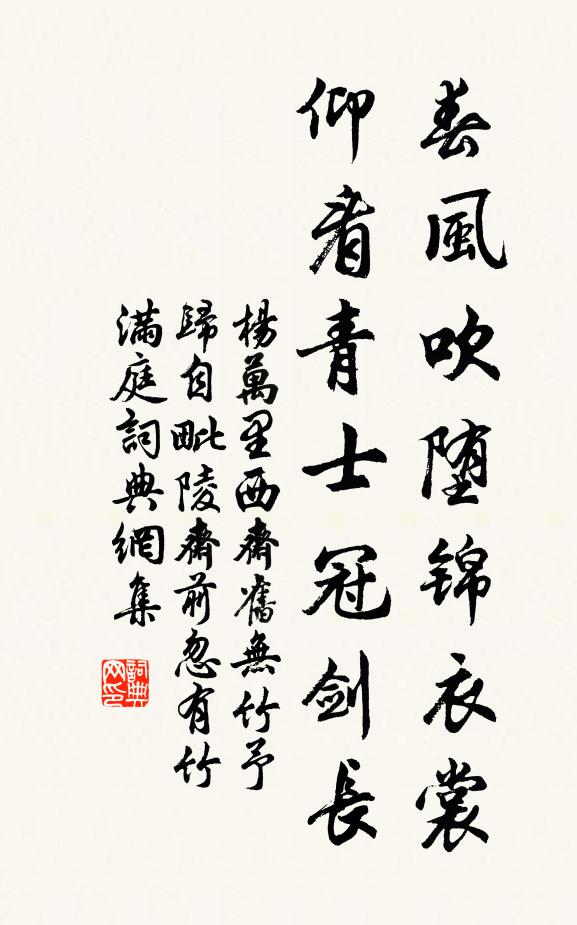 春風吹堕锦衣裳
仰看青士冠剑長
楊萬里西齋舊無竹予
歸自毗陵齋前忽有竹
满庭詞典網集
詞典网印